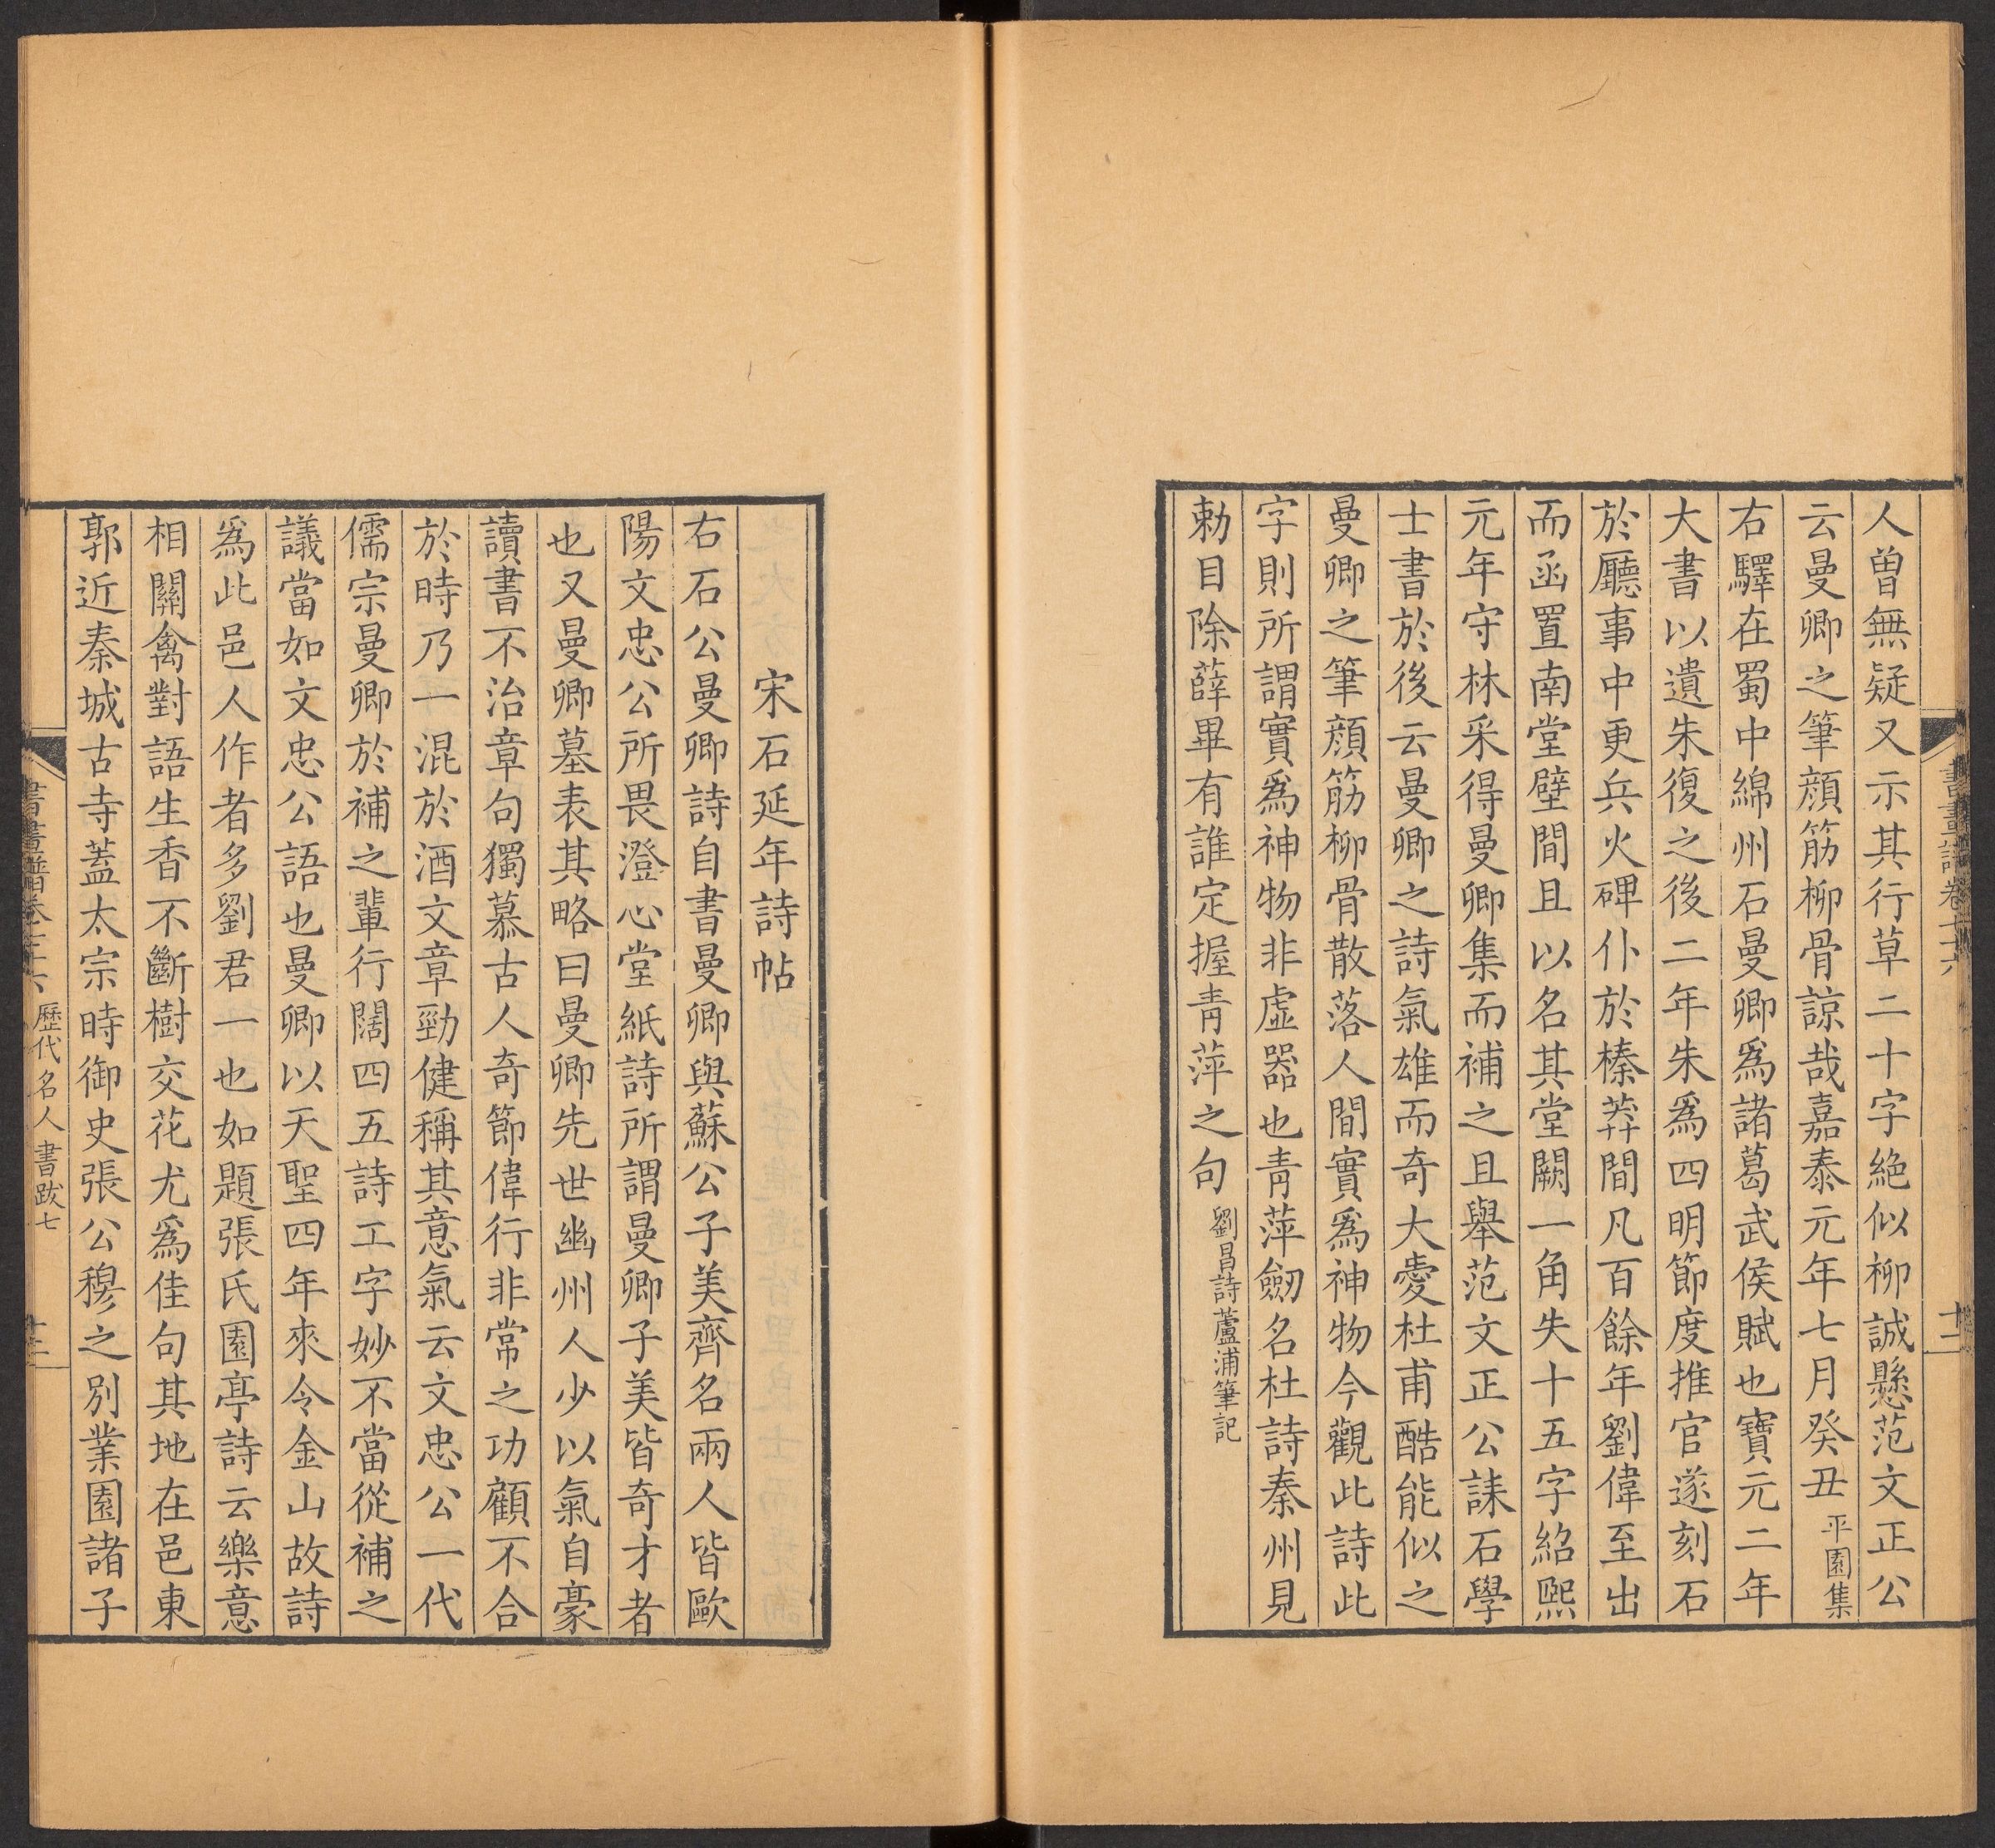 人曾無疑又示其行草二十字絶似柳誠懸范文正公
云曼卿之筆顔筋柳骨諒哉嘉泰元年七月癸丑平園集
右驛在蜀中綿州石曼卿爲諸葛武侯賦也寶元二年
大書以遺朱復之後二年朱爲四明節度推官遂刻石
於廳事中更兵火碑仆於榛莽間凡百餘年劉偉至出
而函置南堂壁間且以名其堂闕一角失十五字紹熙
元年守林采得曼卿集而補之且舉范文正公誄石學
士書於後云曼卿之詩氣雄而奇大愛杜甫酷能似之
曼卿之筆顔筋柳骨散落人間實爲神物今觀此詩此
字則所謂實爲神物非虛器也青萍劒名杜詩秦州見
勅目除薛畢有誰定握青萍之句劉昌詩蘆浦筆記
宋石延年詩帖
右石公曼卿詩自書曼卿與蘇公子美齊名兩人皆歐
陽文忠公所畏澄心堂紙詩所謂曼卿子美皆奇才者
也又曼卿墓表其略曰曼卿先世幽州人少以氣自豪
讀書不治章句獨慕古人奇節偉行非常之功顧不合
於時乃一混於酒文章勁健稱其意氣云文忠公一代
儒宗曼卿於補之輩行闊四五詩工字妙不當從補之
議當如文忠公語也曼卿以天聖四年來令金山故詩
爲此邑人作者多劉君一也如題張氏園亭詩云樂意
相關禽對語生香不斷樹交花尤爲佳句其地在邑東
郭近秦城古寺蓋太宗時御史張公穆之別業園諸子
歷代名人書跋七